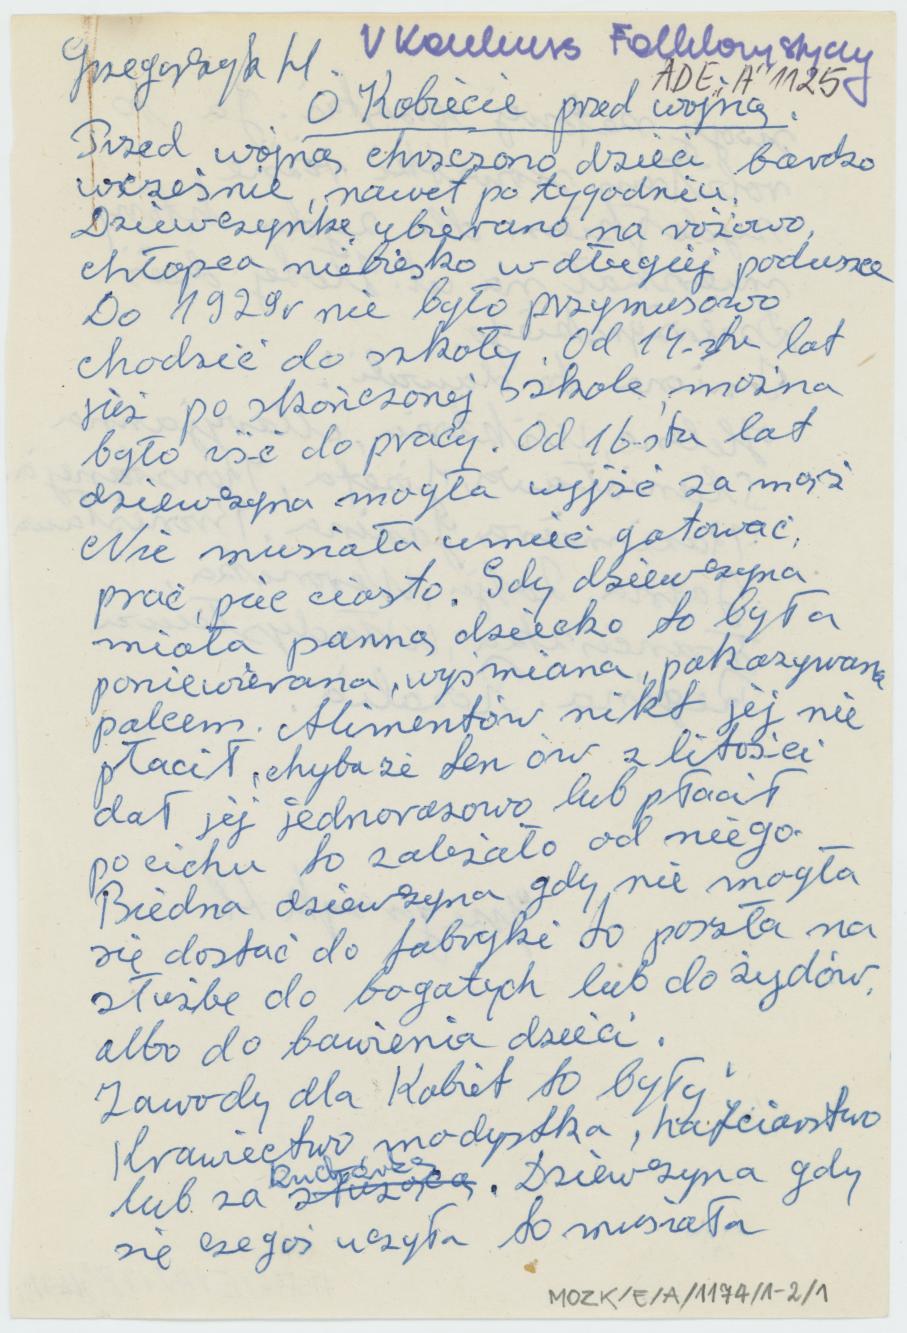 Grzegorzyk H.
V Konkurs Folklorystyczny
ADE „A" 1125
O Kobiecie przed wojną.
Przed wojną chrzczono dzieci bardzo
wcześnie, nawet po tygodniu.
Dziewczynkę ybierano na różowo,
chłopca niebiesko w długiej poduszce
Do 1929r nie było przymusowo
chodzić do szkoły. Od 14-stu lat
już po skończonej szkole, można
było iść do pracy. Od 16-stu lat
dziewczyna mogła wyjść za mąż
Nie musiała umieć gotować,
prać, piec ciasto. Gdy dziewczyna
miała panną dziecko to była
poniewierana, wyśmiana, pokazywana
palcem. Alimentów nikt jej nie
płacił, chyba że ten ów z litości
dał jej jednorazowo lub płacił
po cichu to zależało od niego.
Biedna dziewczyna gdy nie mogła
się dostać do fabryki to poszła na
służbę do bogatych lub do żydów,
albo do bawienia dzieci.
Zawody dla Kobiet to były:
Krawiectwo modystka, hafciarstwo
lub za służącą kucharkę. Dziewczyna gdy
się czegoś uczyła to musiała
MOZK/E/A/1174/1-2/1